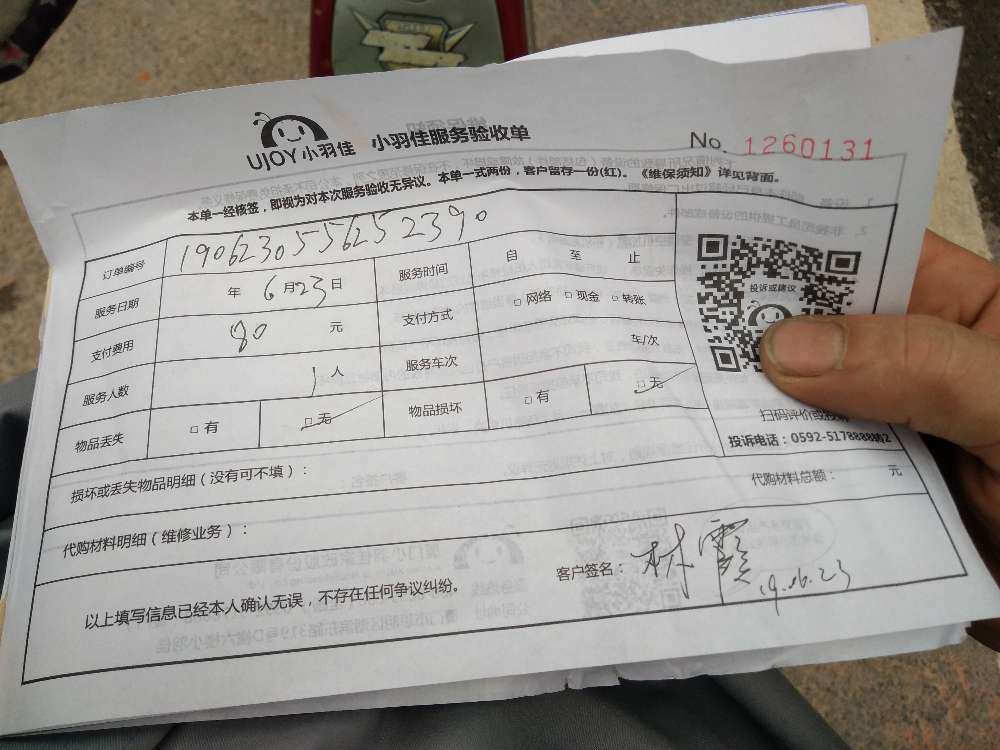 UJOY 小羽佳 小羽佳服务验收单 No. 1260131
本单一经核签，即视为对本次服务验收无异议。本单一式两份，客户留存一份(红)。《维保须知》详见背面。
订单编号 1906230556252390
服务日期 年 6月23日 服务时间 自 至 止
支付费用 80 元 支付方式 □ 网络 □ 现金 □ 转账
服务人数 1人 服务车次 车/次
物品丢失 □ 有 □ 无 物品损坏 □ 有 □ 无
投诉或建议
扫码评价或投诉
投诉电话：0592-5178888转2
损坏或丢失物品明细（没有可不填）：
代购材料明细（维修业务）： 代购材料总额： 元
以上填写信息已经本人确认无误，不存在任何争议纠纷。 客户签名： 林霞 19.06.23